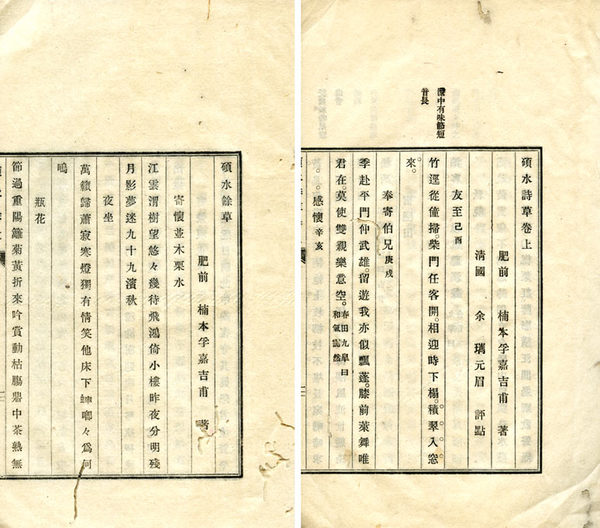 澹中有味節短
音長
碩水詩草卷上
肥前 楠本孚嘉吉甫 著
清國 余 元眉 評點
友至己酉
竹逕從僮掃。柴門任客開。相迎時下榻。積翠入窓
來。
奉寄伯兄庚戌
季赴平門仲武雄。留遊我亦似飄蓬。膝前萊舞唯
君在。莫使雙親樂意空。春田九皐曰
和氣靄然
感懷辛亥
碩水餘草
肥前 楠本孚嘉吉甫 著
寄懷並木栗水
江雲渭樹望悠々幾待飛鴻倚小樓昨夜分明殘
月影夢迷九十九濱秋
夜坐
萬籟歸蕭寂寒燈獨有情笑他床下 唧々爲何
鳴
瓶花
節過重陽籬菊黃折來吟賞動枯腸 中茶熟無